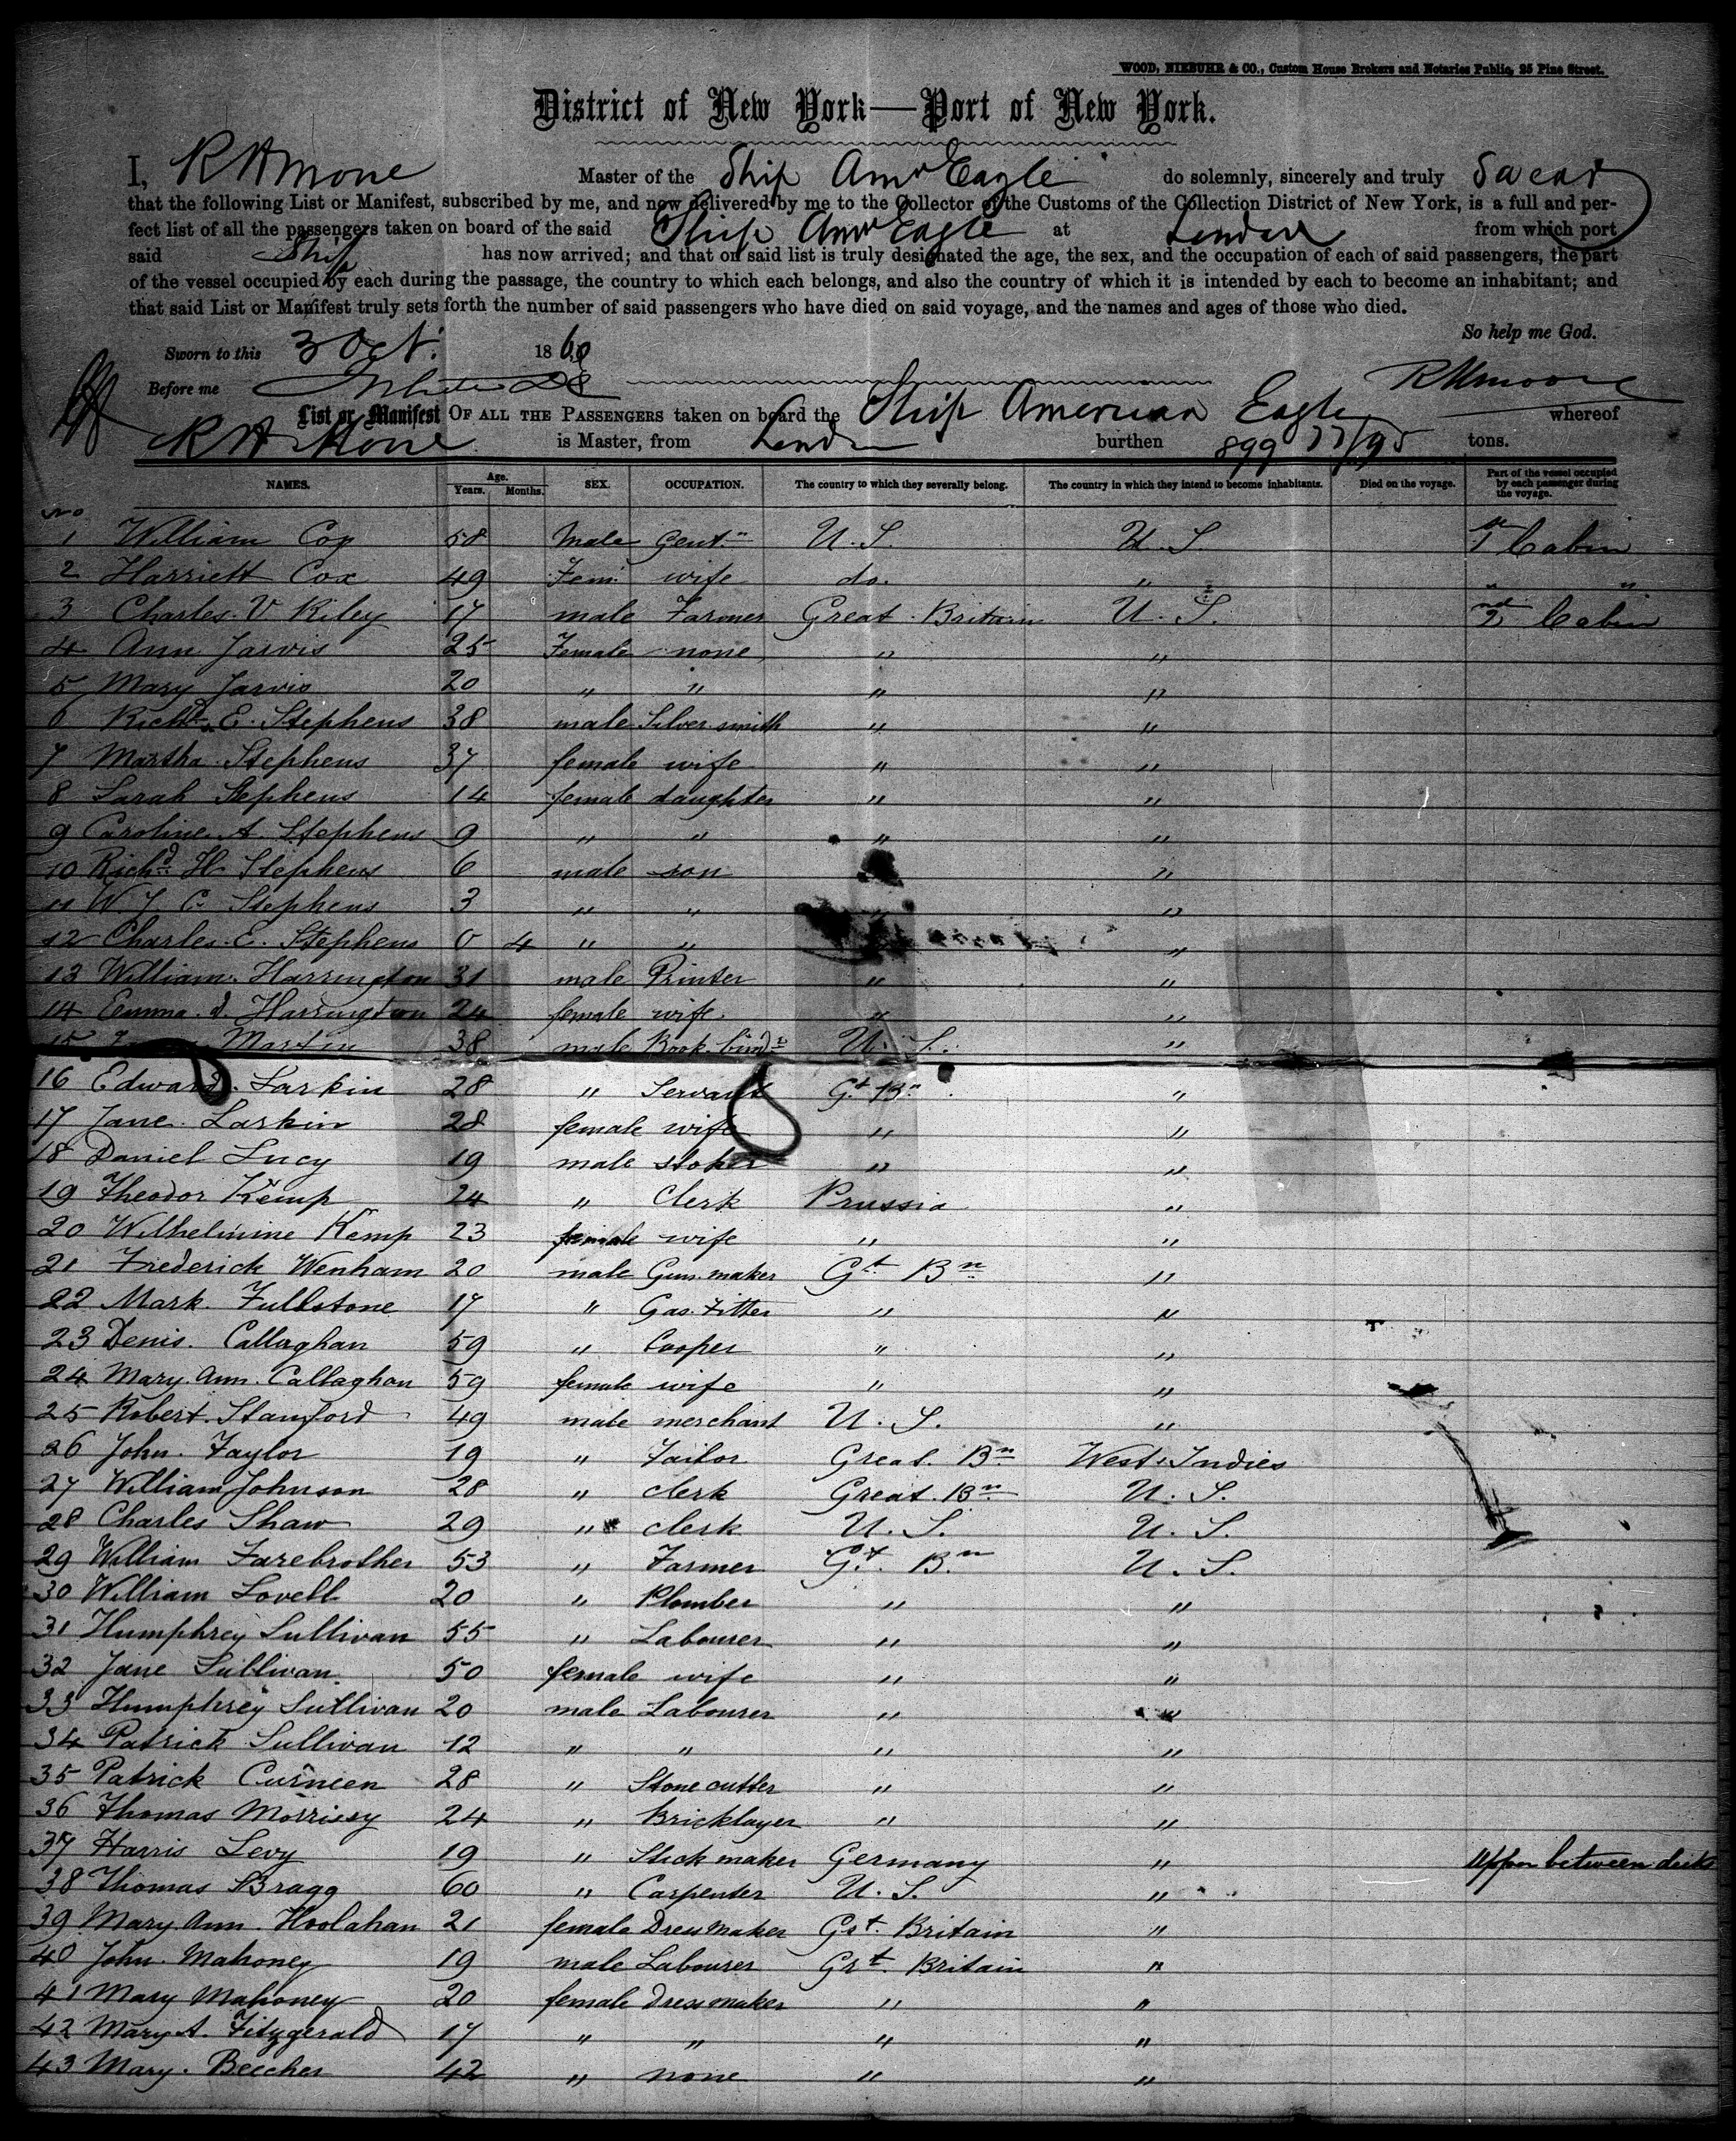 WOOD, NIEBUHR & CO., Custom House Brokers and Notaries Public, 25 Pine Street.
District of New York—Port of New York.
I, R H Moore Master of the Ship Amn Eagle do solemnly, sincerely and truly Swear
that the following List or Manifest, subscribed by me, and now delivered by me to the Collector of the Customs of the Collection District of New York, is a full and per-
fect list of all the passengers taken on board of the said Ship Amn Eagle at London from which port
said Ship has now arrived; and that on said list is truly designated the age, the sex, and the occupation of each of said passengers, the part
of the vessel occupied by each during the passage, the country to which each belongs, and also the country of which it is intended by each to become an inhabitant; and
that said List or Manifest truly sets forth the number of said passengers who have died on said voyage, and the names and ages of those who died.
So help me God.
Sworn to this 3 Oct. 1860
Before me R H Moore
List or Manifest OF ALL THE PASSENGERS taken on board the Ship American Eagle whereof
R H Moore is Master, from London burthen 899 77/95 tons.
NAMES. Age. Years. Months. SEX. OCCUPATION. The country to which they severally belong. The country in which they intend to become inhabitants. Died on the voyage. Part of the vessel occupied by each passenger during the voyage.
No
1 William Cox 58 Male Gent.n U. S. U. S. 1st Cabin
2 Harriett Cox 49 Fem. wife do. " " "
3 Charles. V Riley 17 male Farmer Great Britain U. S. 2nd Cabin
4 Ann Jarvis 25 Female none " "
5 Mary Jarvis 20 " " " "
6 Richd. E. Stephens 38 male Silver smith " "
7 Martha Stephens 37 female wife " "
8 Sarah Stephens 14 female daughter " "
9 Caroline. A. Stephens 9 " " " "
10 Richd. H Stephens 6 male son "
11 W. J. C. Stephens 3 " " " "
12 Charles. E. Stephens 0 4 " " "
13 William. Harrington 31 male Printer " "
14 Emma. J. Harrington 24 female wife. " "
15 Martin 38 male Book. bindr U. S. "
16 Edward. Larkin 28 " Servant Gt Bn "
17 Jane. Larkin 28 female wife " "
18 Daniel Lucy 19 male stoker " "
19 Theodor Kemp 24 " Clerk Prussia "
20 Wilhelmine Kemp 23 female wife " "
21 Frederick Wenham 20 male Gun. maker Gt Bn "
22 Mark. Fullstone 17 " Gas. Fitter " "
23 Denis. Callaghan 59 " Cooper " "
24 Mary. Ann. Callaghan 59 female wife " "
25 Robert. Stamford 49 male merchant U. S. "
26 John. Taylor 19 " Tailor Great. Bn West. Indies
27 William Johnson 28 " clerk Great. Bn U. S.
28 Charles Shaw 29 " clerk U. S. U. S.
29 William Farebrother 53 " Farmer Gt. Bn U. S.
30 William Lovell 20 " Plomber " "
31 Humphrey Sullivan 55 " Labourer " "
32 Jane Sullivan 50 female wife " "
33 Humphrey Sullivan 20 male Labourer " "
34 Patrick Sullivan 12 " " " "
35 Patrick Curneen 28 " Stone cutter " "
36 Thomas Morrissy 24 " Bricklayer " "
37 Harris Levy 19 " Stick maker Germany " upper between decks
38 Thomas Bragg 60 " Carpenter U. S. "
39 Mary Ann. Hoolahan 21 female Dress maker Grt. Britain "
40 John. Mahoney 19 male Labourer Grt. Britain "
41 Mary Mahoney 20 female Dress maker " "
42 Mary A. Fitzgerald 17 " " " "
43 Mary. Beecher 42 " none " "